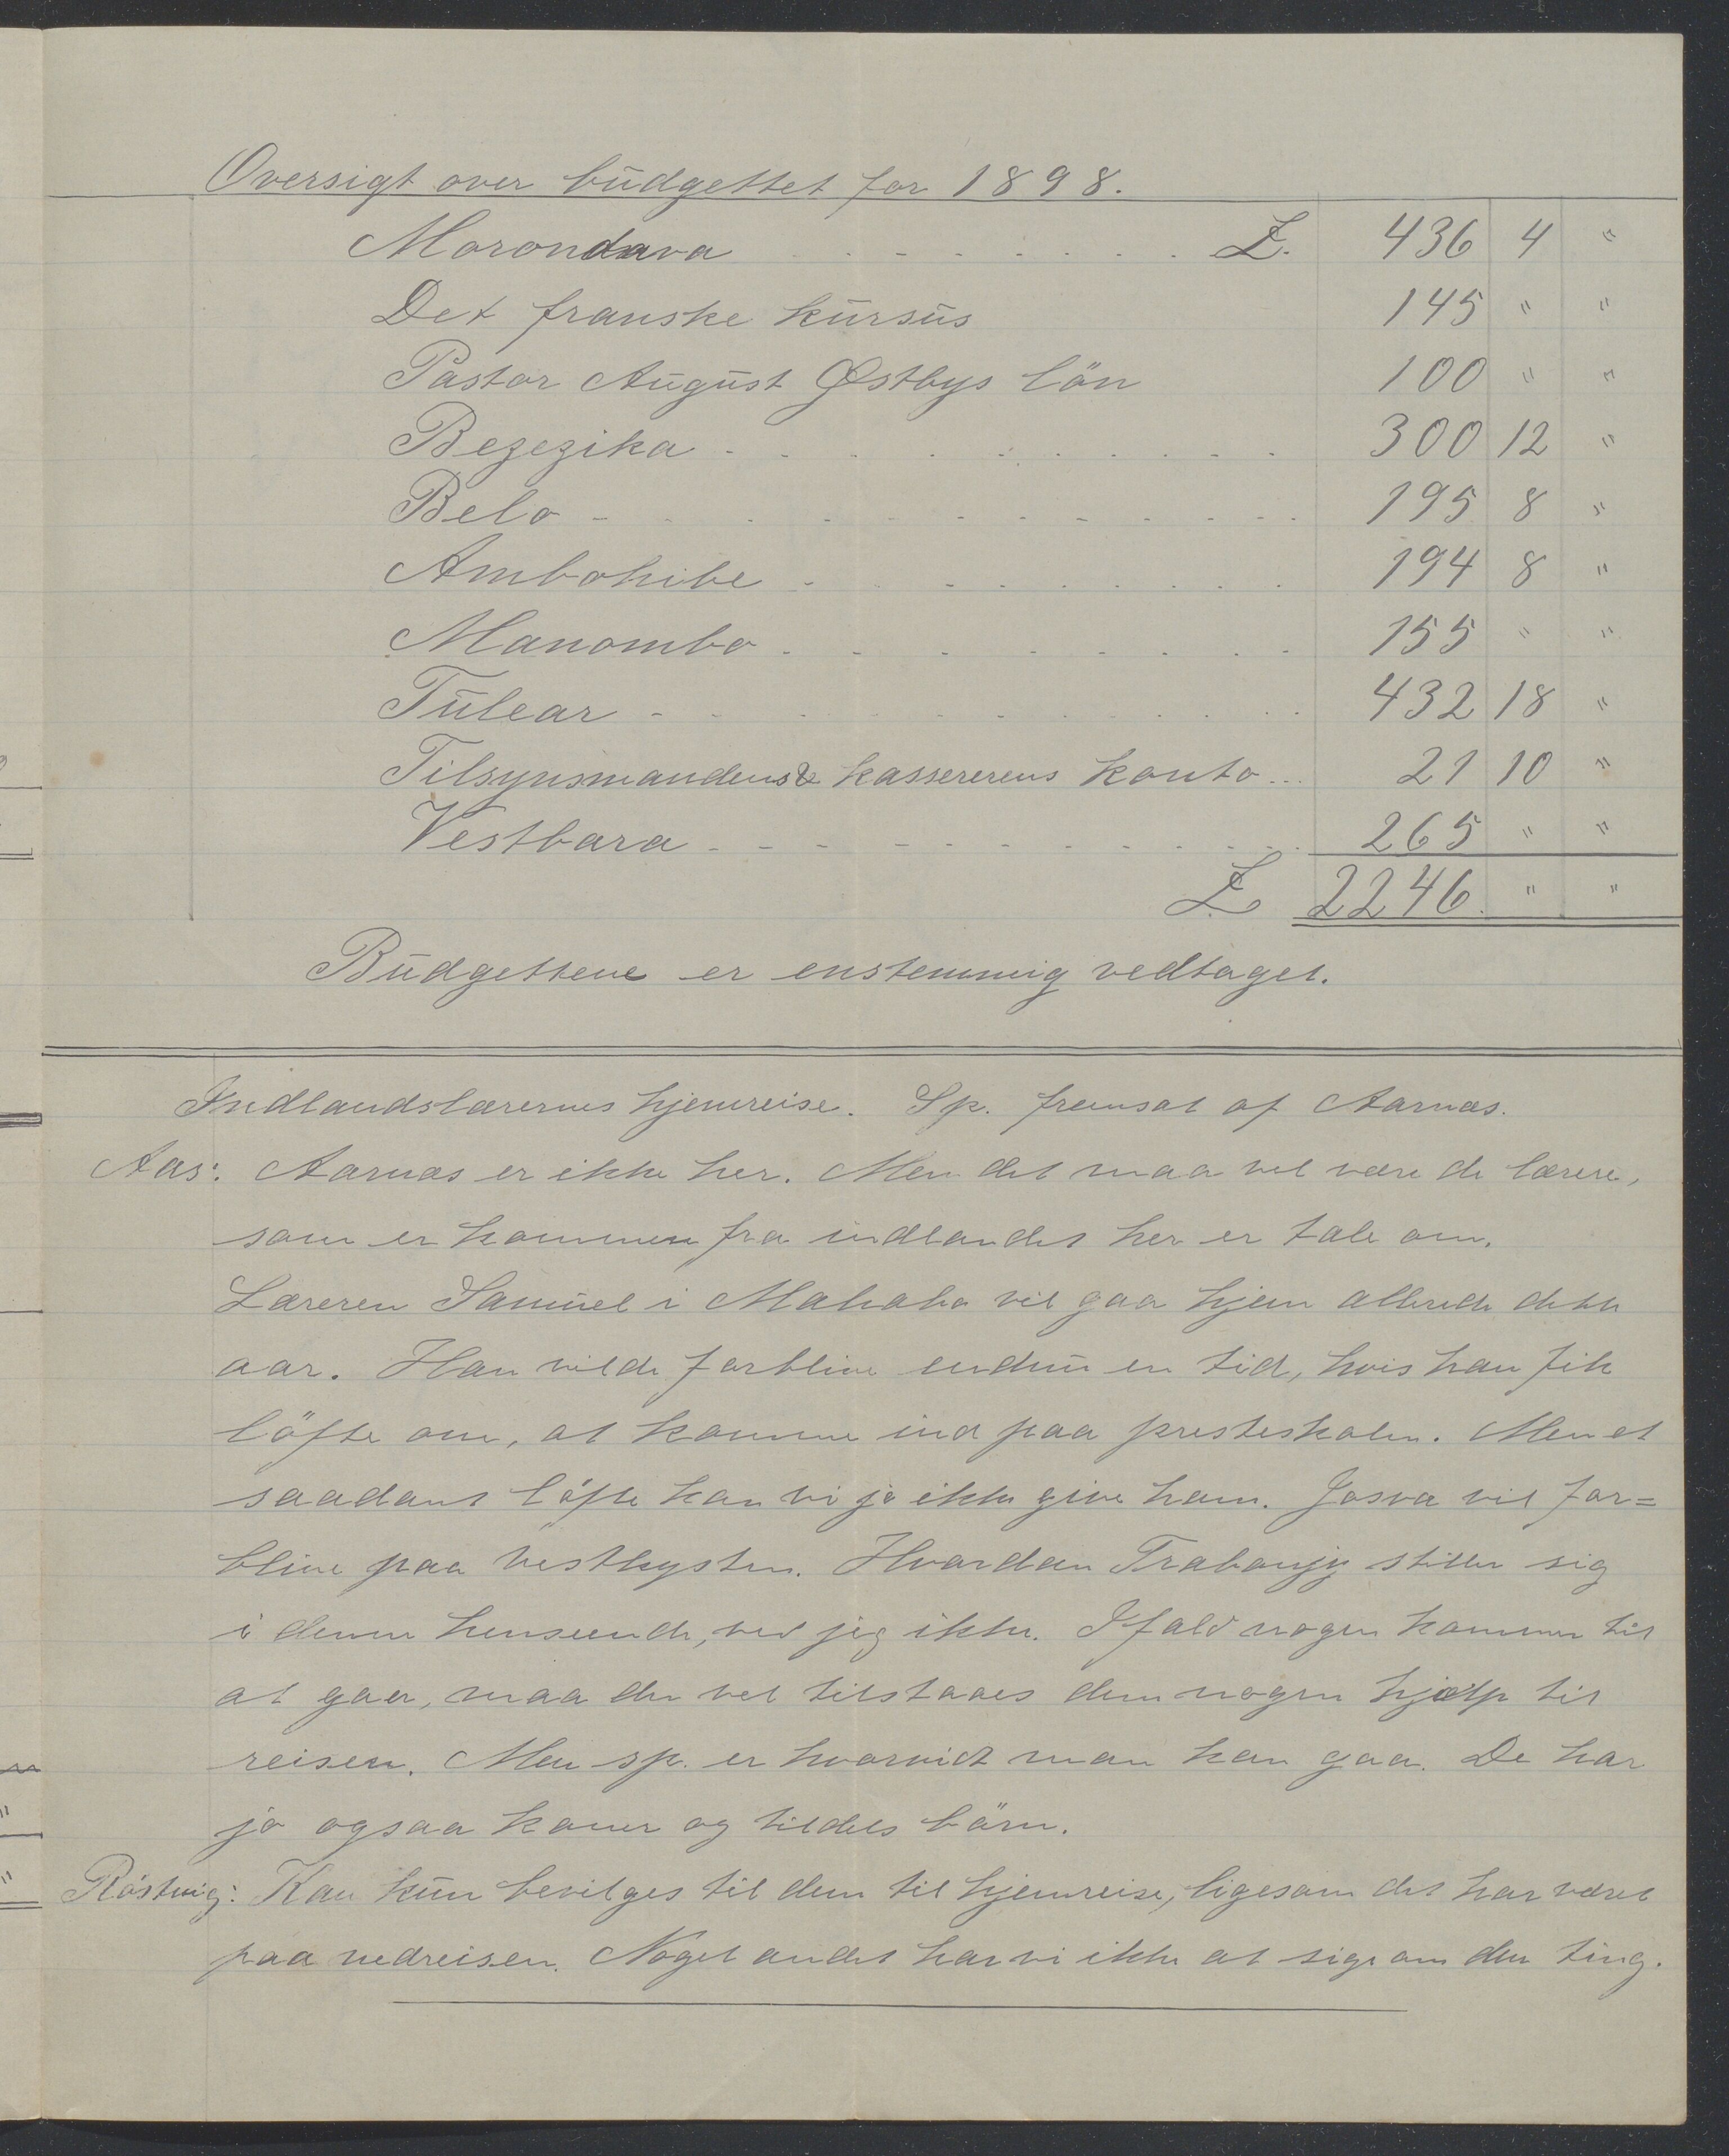 Oversigt over budgettet for 1898.
Morondava . . . . . . . . £. 436 4 "
Det franske kursus 145 " "
Pastor August Østbys lön 100 " "
Bezezika . . . . . . . . . . 300 12 "
Belo - . . . . . . . . . . . 195 8 "
Ambohibe . . . . . . . . . 194 8 "
Manombo . . . . . . . . . 155 " "
Tulear - . . . . . . . . . . 432 18 "
Tilsynsmandens & kassererens konto ... 21 10 "
Vestbara . . . . . . . . . . 265 " "
£ 2246. " "
Budgettene er enstemmig vedtaget.
Indlandslærernes hjemreise. Sp. fremsat af Aarnæs.
Aas: Aarnæs er ikke her. Men det maa vel være de lærere,
som er kommen fra indlandet her er tale om.
Læreren Samuel i Mahaba vil gaa hjem allerede dette
aar. Han vilde forblive endnu en tid, hvis han fik
löfte om, at komme ind paa presteskolen. Men et
saadant löfte kan vi jo ikke give ham. Josva vil for=
blive paa vestkysten. Hvordan Trabonjy stiller sig
i denne henseende, ved jeg ikke. Ifald nogen kommer til
at gaa, maa der vel tilstaaes dem nogen hjælp til
reisen. Men sp. er hvorvidt man kan gaa. De har
jo ogsaa koner og tildels börn.
Röstvig: Kan kun bevilges til dem til hjemreise, ligesom det har været
paa nedreisen. Noget andet har vi ikke at sige om den ting.